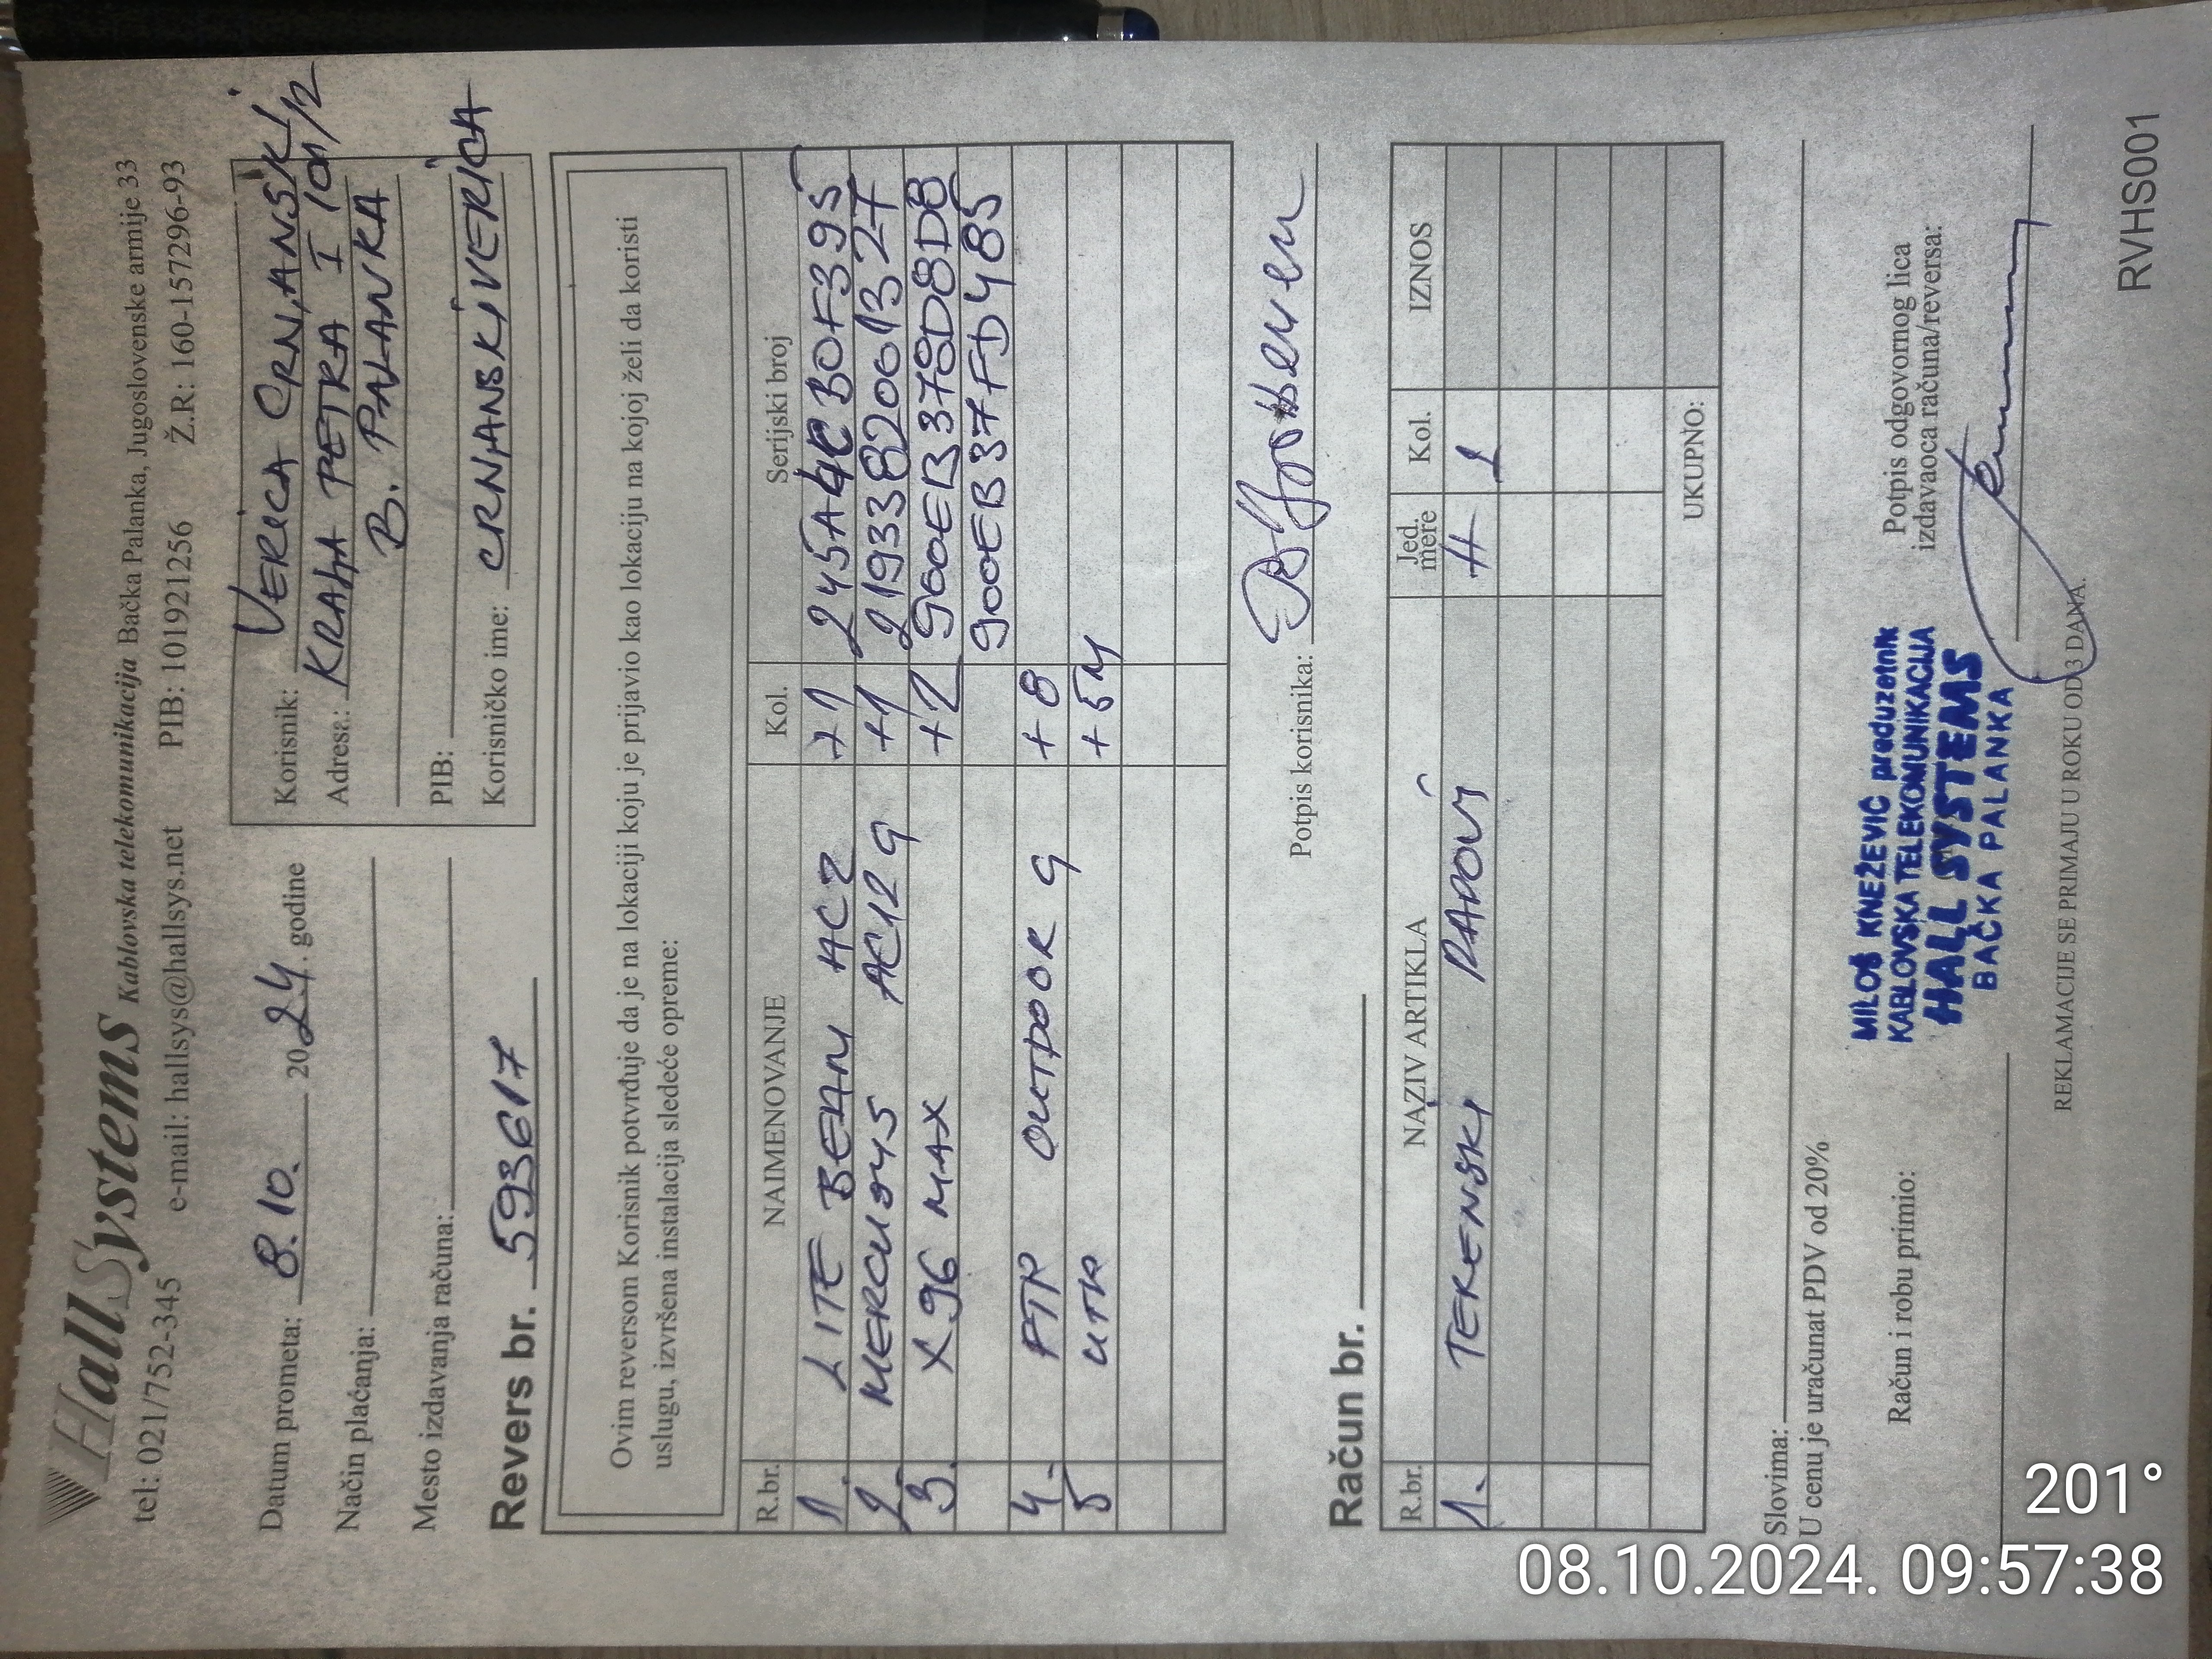 HallSystems Kablovska telekomunikacija Bačka Palanka, Jugoslovenske armije 33
tel: 021/752-345 e-mail: hallsys@hallsys.net PIB: 101921256 Ž.R: 160-157296-93
Datum prometa: 8.10. 2024. godine
Način plaćanja:
Mesto izdavanja računa:
Revers br. 593617
Korisnik: VERICA CRNJANSKI
Adresa: KRALJA PETRA I
B. PALANKA
PIB:
Korisničko ime: CRNJANSKIVERICA
Ovim reversom Korisnik potvrđuje da je na lokaciji koju je prijavio kao lokaciju na kojoj želi da koristi
uslugu, izvršena instalacija sledeće opreme:
R.br. NAIMENOVANJE Kol. Serijski broj
1. LITE BEAM AC2 +1 245A4CB0F395
2. MERCUSYS AC12 G +1 2193382001327
3. X96 MAX +2 900EB378D8DB
900EB37FD485
4. FTP OUTDOOR 9 +8
5 UTP +5M
Potpis korisnika:
Račun br.
R.br. NAZIV ARTIKLA Jed. mere Kol. IZNOS
1. TERENSKI RADOVI H 1
UKUPNO:
Slovima:
U cenu je uračunat PDV od 20%
Račun i robu primio:
MILOŠ KNEŽEVIĆ preduzetnik
KABLOVSKA TELEKOMUNIKACIJA
HALL SYSTEMS
BAČKA PALANKA
Potpis odgovornog lica
izdavaoca računa/reversa:
REKLAMACIJE SE PRIMAJU U ROKU OD 3 DANA.
RVHS001
201°
08.10.2024. 09:57:38